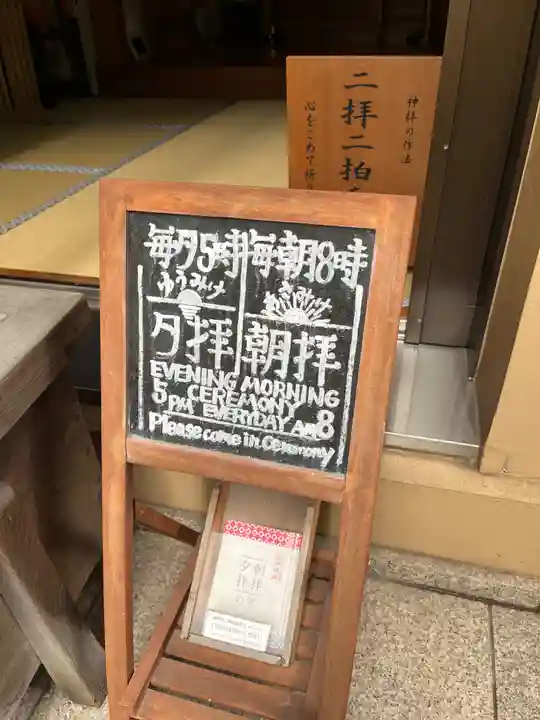 神拝の作法
二拝二拍
心をこめて
毎夕5時 毎朝8時
ゆうみけ あさみけ
夕拝 朝拝
EVENING MORNING
CEREMONY
5 PM EVERYDAY AM 8
Please come in Ceremony
朝拝
夕拝
の